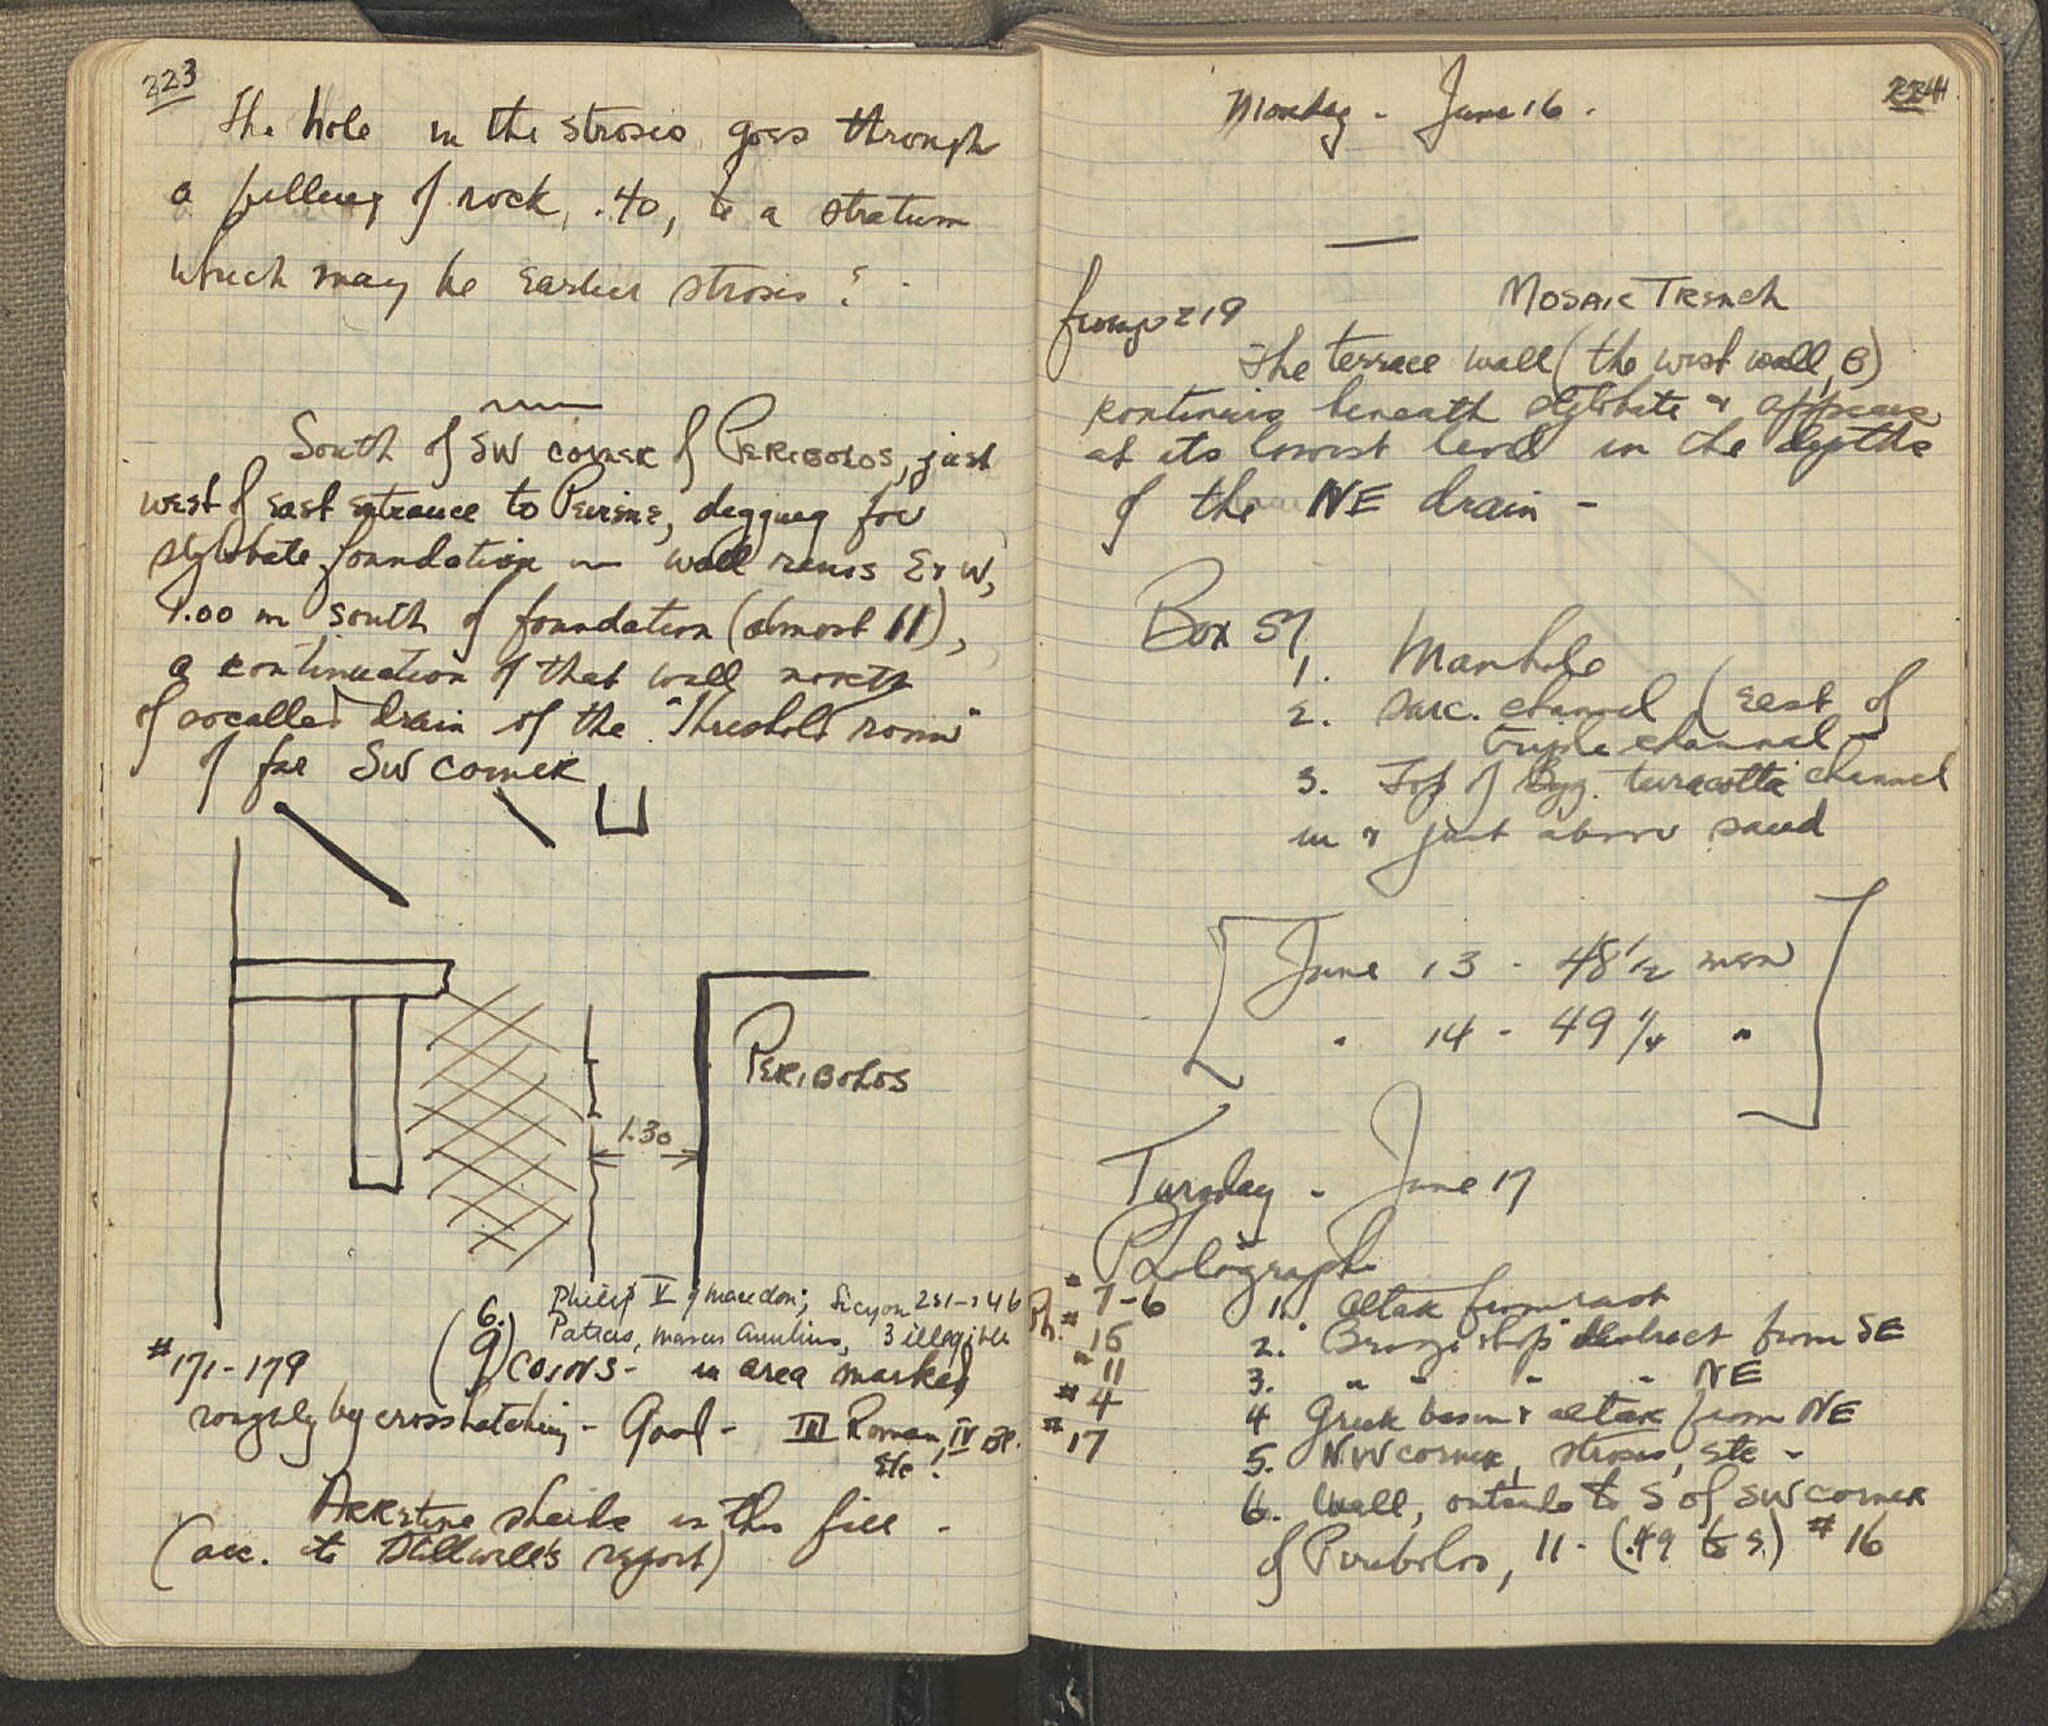 223
The hole in the strosis goes through
a filling of rock, .40, to a stratum
which may be earlier strosis?
South of SW corner of PERIBOLOS, just
west of east entrance to Peirene, digging for
stylobate foundation — wall runs E & W,
1.00 m south of foundation (almost 11),
a continuation of that wall north
of so called drain of the "Threshold room"
of far SW corner
PERIBOLOS
1.30
6. Philip V of Macedon; Sicyon 251-146
Patras, Marcus Aurelius, 3 illegible
#171-179 (9) COINS - in area marked
roughly by crosshatching - Good - III Roman, IV
etc!
ARREtine sherds in this fill -
(acc. to Stillwell's report)
224
Monday - June 16.
from p 219
MOSAIC TRENCH
The terrace wall (the west wall, B)
continues beneath stylobate & appears
at its lowest level in the depths
of the NE drain -
Box 57
1. Manhole
2. sarc. channel (east of
triple channel
3. Top of Byz. terracotta channel
in & just above sand
[June 13 - 48 1/2 men
" 14 - 49 1/4 "]
Tuesday - June 17
Photographs
Ph. #7-6 1. altar from east
#15 2. "Bronze shop" district from SE
" 11 3. " " " " NE
#4 4 Greek basin & altar from NE
#17 5. NW corner, strosis, etc -
6. Wall, outside to S of SW corner
of Peribolos, 11 - (.49 to S.) #16